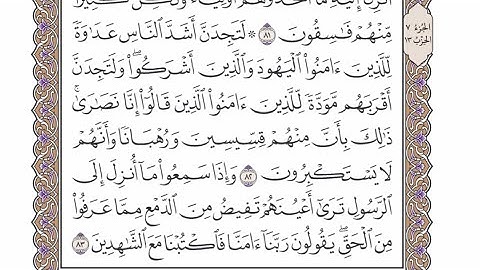 أُنزِلَ إِلَيْهِ مَا ٱتَّخَذُوهُمْ أَوْلِيَآءَ وَلَٰكِنَّ كَثِيرًا
مِّنْهُمْ فَٰسِقُونَ ٨١ ۞ لَتَجِدَنَّ أَشَدَّ ٱلنَّاسِ عَدَٰوَةً
لِّلَّذِينَ ءَامَنُوا۟ ٱلْيَهُودَ وَٱلَّذِينَ أَشْرَكُوا۟ ۖ وَلَتَجِدَنَّ
أَقْرَبَهُم مَّوَدَّةً لِّلَّذِينَ ءَامَنُوا۟ ٱلَّذِينَ قَالُوٓا۟ إِنَّا نَصَٰرَىٰ ۚ
ذَٰلِكَ بِأَنَّ مِنْهُمْ قِسِّيسِينَ وَرُهْبَانًا وَأَنَّهُمْ
لَا يَسْتَكْبِرُونَ ٨٢ وَإِذَا سَمِعُوا۟ مَآ أُنزِلَ إِلَى
ٱلرَّسُولِ تَرَىٰٓ أَعْيُنَهُمْ تَفِيضُ مِنَ ٱلدَّمْعِ مِمَّا عَرَفُوا۟
مِنَ ٱلْحَقِّ ۖ يَقُولُونَ رَبَّنَآ ءَامَنَّا فَٱكْتُبْنَا مَعَ ٱلشَّٰهِدِينَ ٨٣
الجُزْءُ ٧
الحِزْبُ ١٣